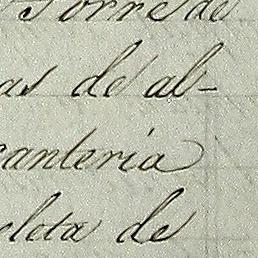 Torre de
as de al-
cantería
leta de